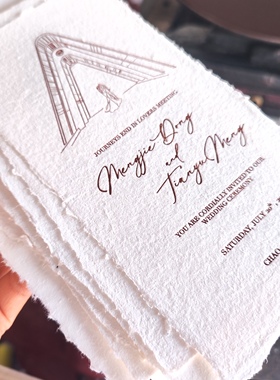 JOURNEYS END IN LOVERS MEETING
Mengjie Dong
and
Tianyu Meng
YOU ARE CORDIALLY INVITED TO OUR
WEDDING CEREMONY
SATURDAY, JULY
CHAO